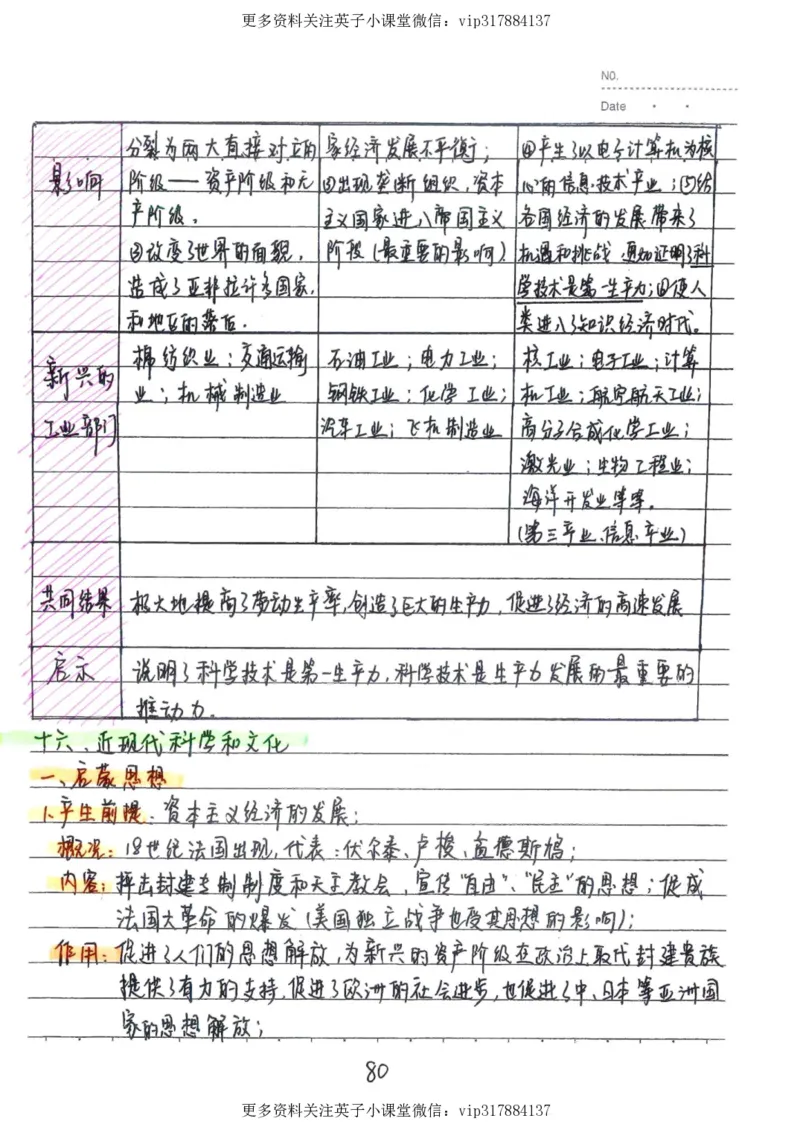 更多资料关注英子小课堂微信：vip317884137
NO.
Date
分裂为两大直接对立的 家经济发展不平衡； ④产生了以电子计算机为核
影响 阶级——资产阶级和无 ②出现垄断组织，资本 心的信息技术产业；⑤给
产阶级。 主义国家进入帝国主义 各国经济的发展带来了
②改变了世界的面貌， 阶段（最重要的影响） 机遇和挑战，更加证明了科
造成了亚非拉许多国家， 学技术是第一生产力；⑥使人
和地区的落后． 类进入了知识经济时代。
新兴的 棉纺织业；交通运输 石油工业；电力工业； 核工业；电子工业；计算
业；机械制造业 钢铁工业；化学工业； 机工业；航空航天工业；
工业部门 汽车工业；飞机制造业 高分子合成化学工业；
激光业；生物工程业；
海洋开发业等等。
（第三产业、信息产业）
共同结果 极大地提高了劳动生产率，创造了巨大的生产力，促进了经济的高速发展
启示 说明了科学技术是第一生产力，科学技术是生产力发展的最重要的
推动力。
十六、近现代科学和文化
一、启蒙思想
1、产生前提：资本主义经济的发展；
概况：18世纪法国出现，代表：伏尔泰、卢梭、孟德斯鸠；
内容：抨击封建专制制度和天主教会，宣传“自由”、“民主”的思想；促成
法国大革命的爆发（美国独立战争也受其思想的影响）；
作用：促进了人们的思想解放，为新兴的资产阶级在政治上取代封建贵族
提供了有力的支持，促进了欧洲的社会进步，也促进了中、日本等亚洲国
家的思想解放；
80
更多资料关注英子小课堂微信：vip317884137